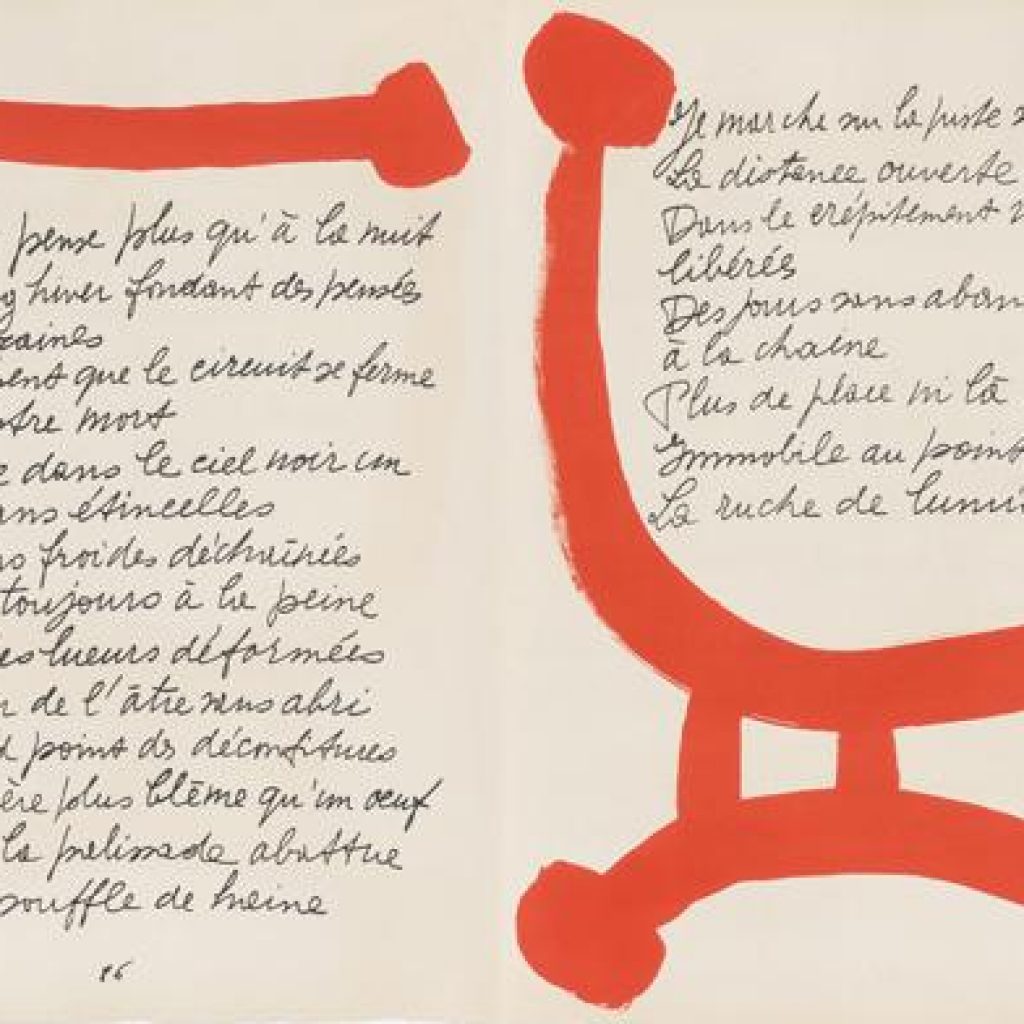 pense plus qu'à la nuit
hiver fondant des pensées
raines
ent que le circuit se ferme
otre mort
dans le ciel noir un
ans étincelles
froides déchaînées
toujours à la peine
es lueurs déformées
de l'âtre sans abri
point de déconfitures
ère plus blême qu'un oeuf
la palissade abattue
souffle de haine
86
Je marche sur la piste
La distance ouverte
Dans le crépitement
libérés
Des jours sans aban
à la chaine
Plus de place ni là
Immobile au point
La ruche de lumi